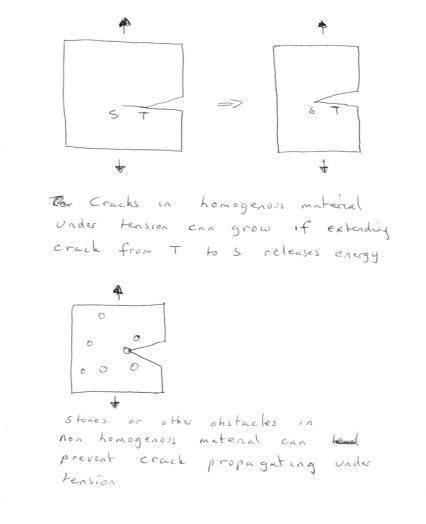 S T
S T
Cracks in homogenous material
under tension can grow if extending
crack from T to S releases energy
stones or other obstacles in
non homogenous material can
prevent crack propagating under
tension